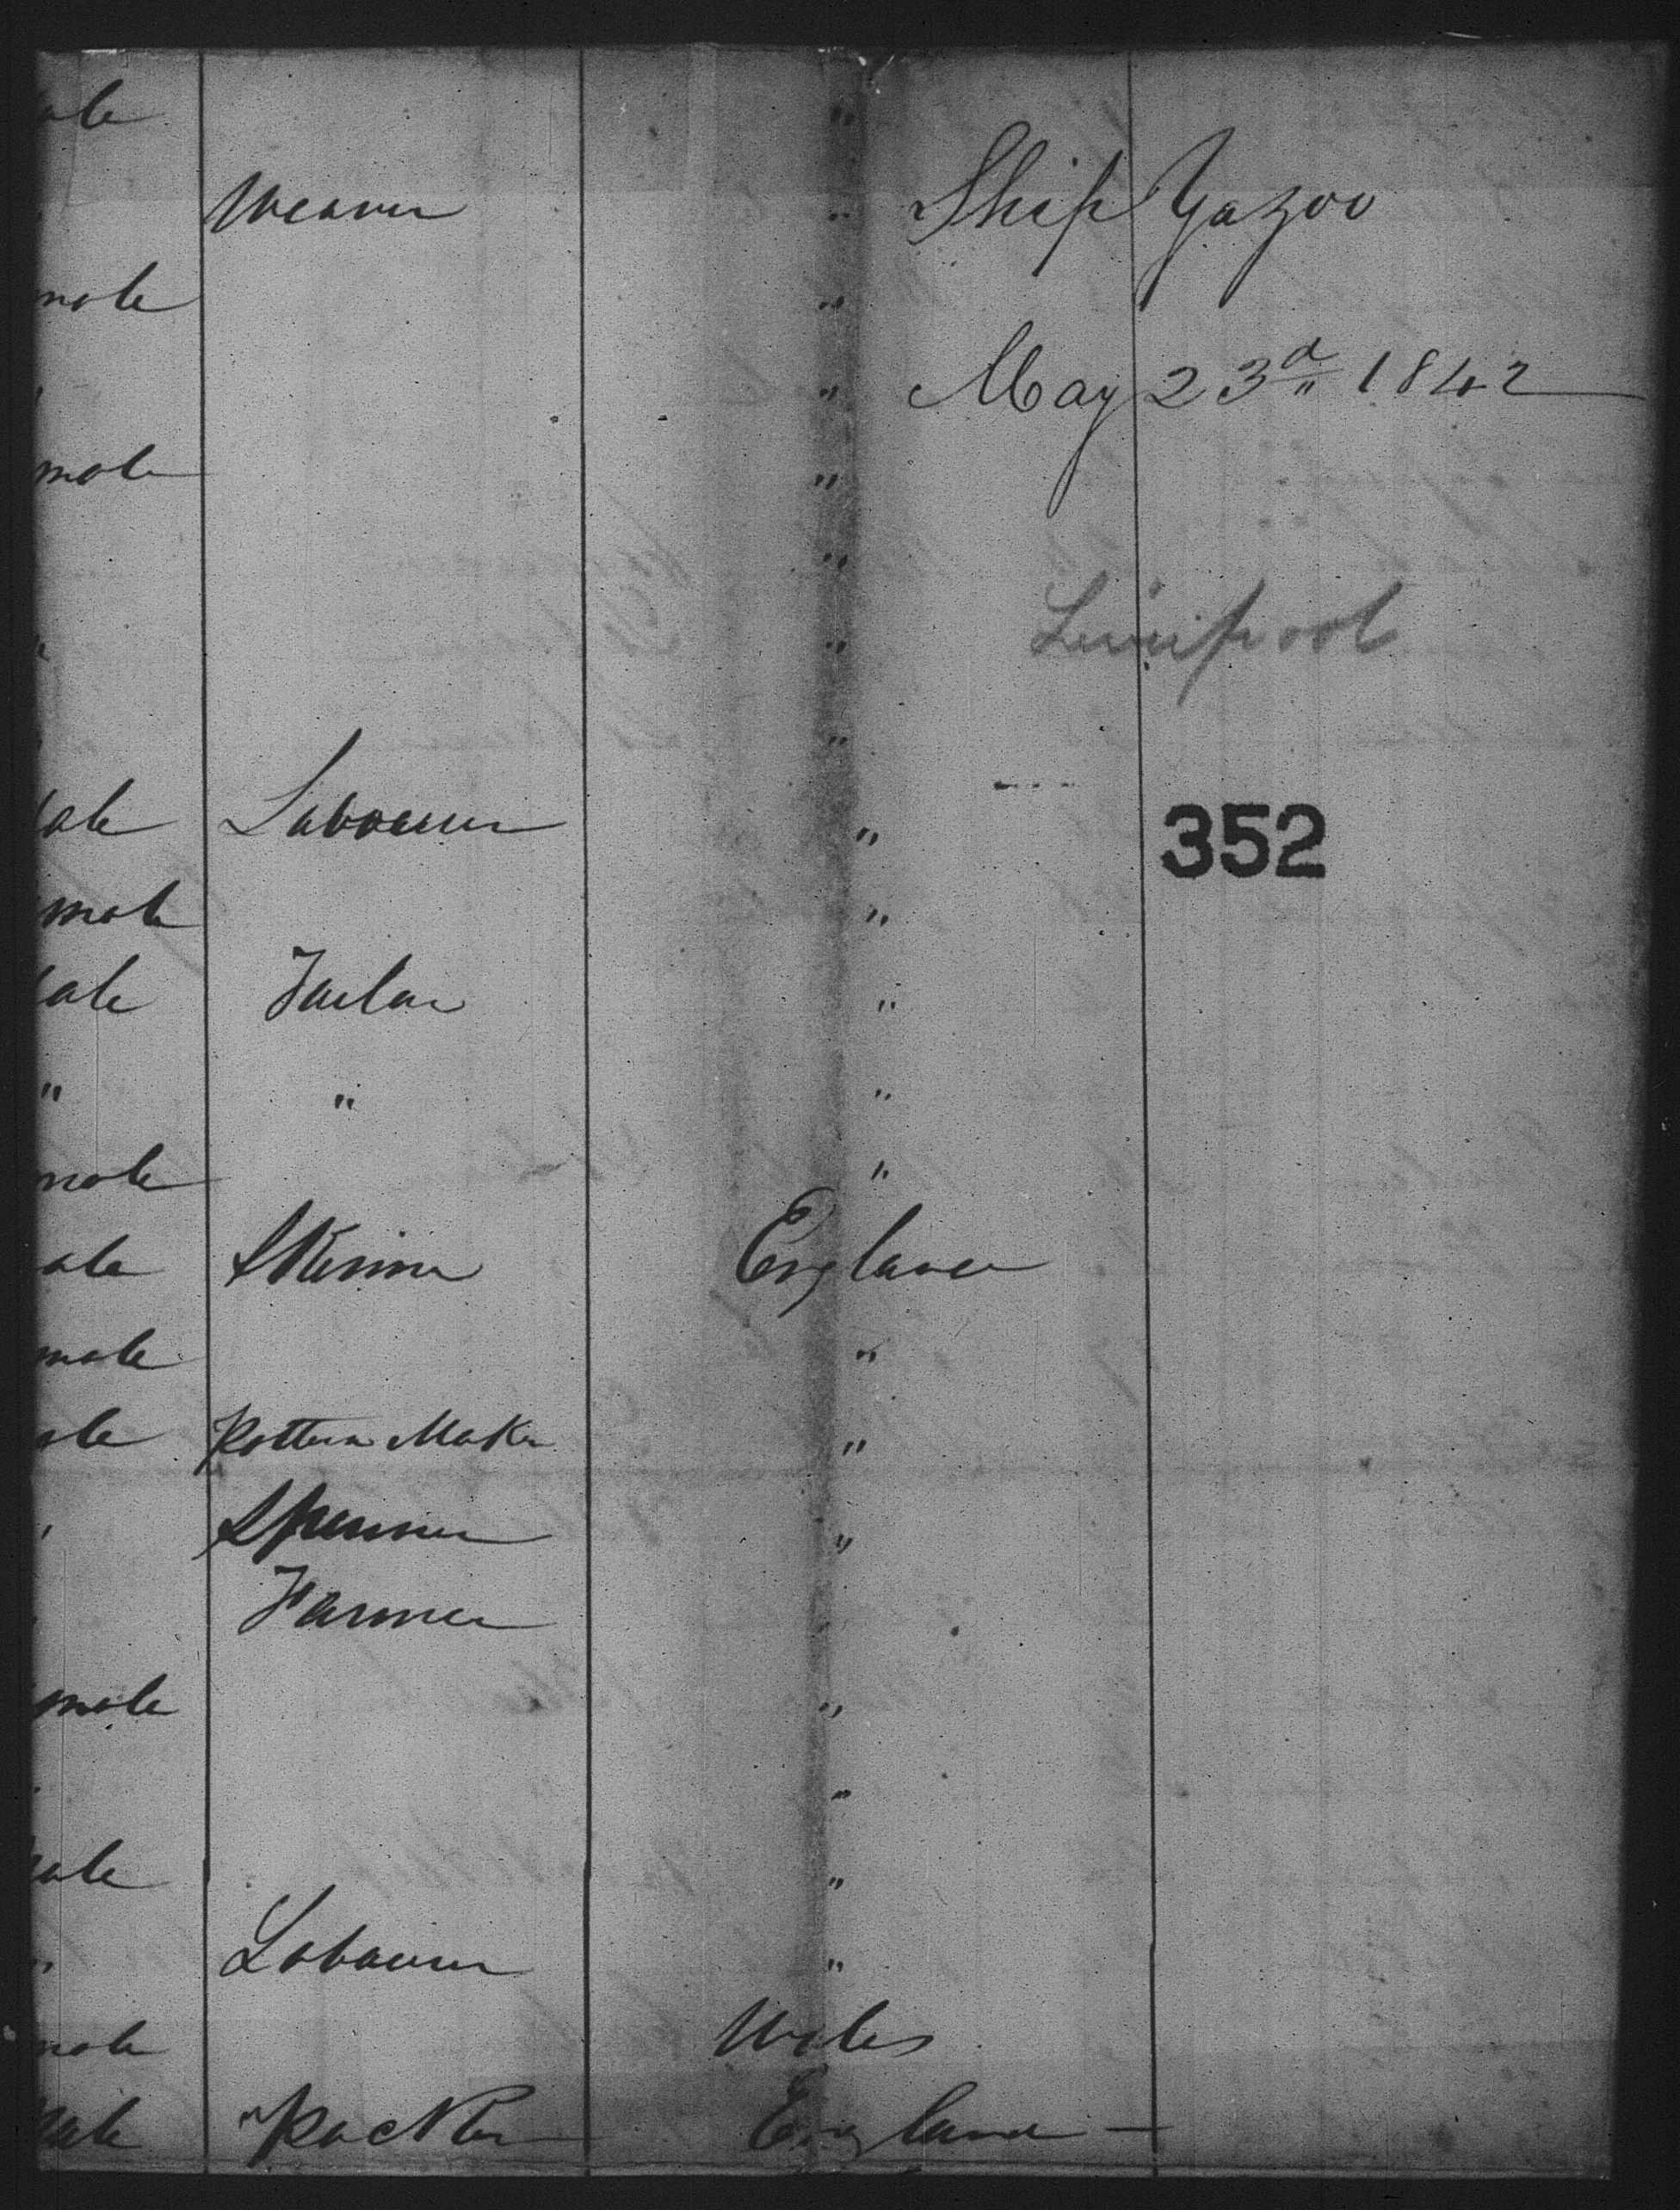 ale "
Weaver " Ship Yazoo
male "
" May 23d 1842
male "
"
" " Liverpool
"
ale Labourer " 352
male "
ale Tailor "
" " "
male "
ale Skinner England
male "
ale Pattern Maker "
Spinner "
Farmer "
male "
"
ale "
" Labourer "
male Wales
Male Packer England